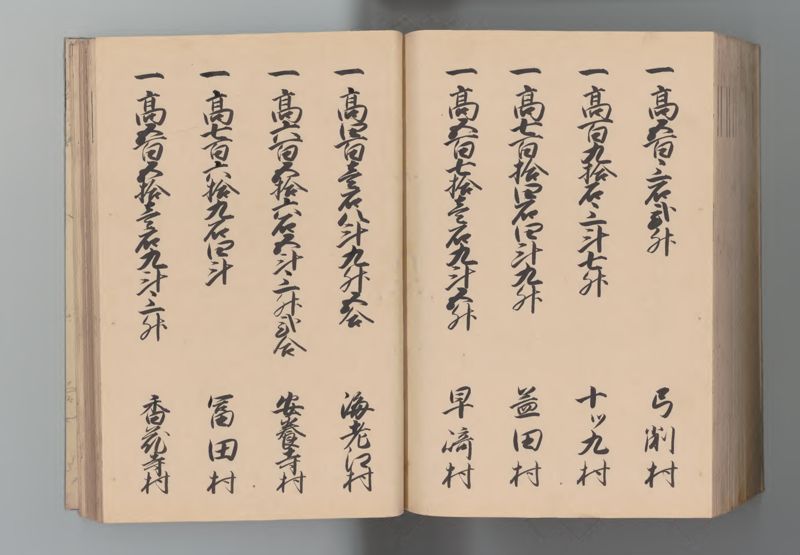 一 高五百三石弐升 弓削村
一 高百九拾石三斗七升 十ツ九村
一 高七百拾四石四斗九升 益田村
一 高五百七拾壱石九斗五升 早﨑村
一 高四百壱石八斗九升五合 海老江村
一 高六百五拾六石五斗三升弐合 安養寺村
一 高七百六拾九石四斗 冨田村
一 高五百五拾壱石九斗三升 香花寺村